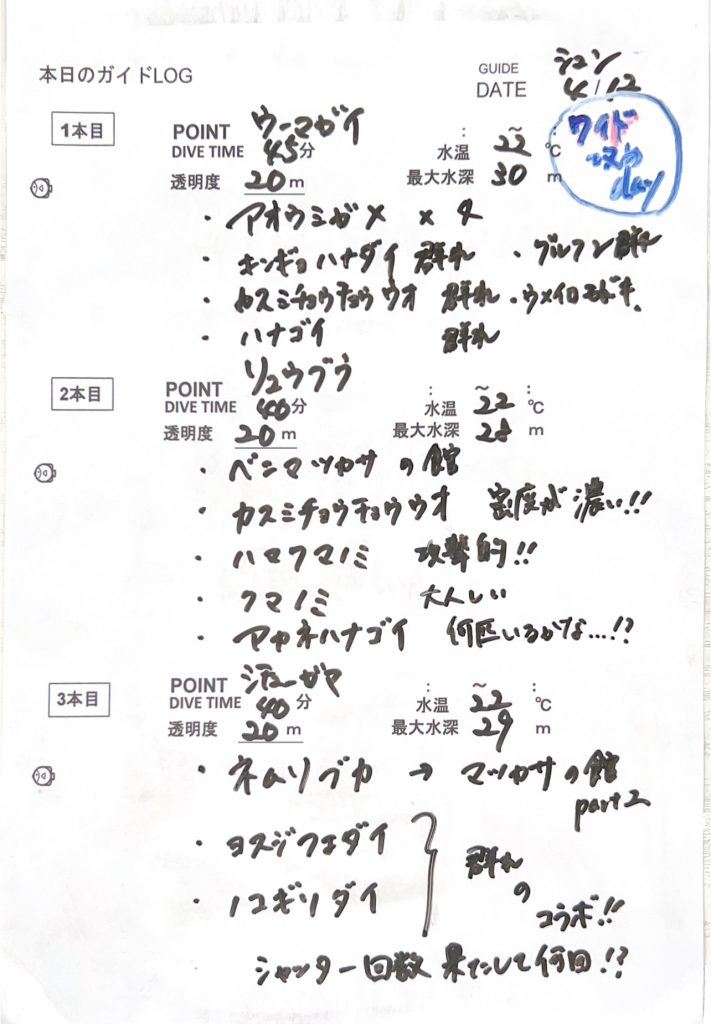 本日のガイドLOG
GUIDE シュン
DATE 4/12
ワイド
day
1本目
POINT ウーマガイ
DIVE TIME 45分
水温 ~22℃
透明度 20m
最大水深 30m
・アオウミガメ ×4
・キンギョハナダイ 群れ ・グルクン群れ
・カスミチョウチョウウオ 群れ・ウメイロモドキ
・ハナゴイ 群れ
2本目
POINT リュウグウ
DIVE TIME 40分
水温 ~22℃
透明度 20m
最大水深 28m
・ベニマツカサの館
・カスミチョウチョウウオ 密度が濃い!!
・ハマクマノミ 攻撃的!!
・クマノミ 大人しい
・アカネハナゴイ 何匹いるかな…!?
3本目
POINT
DIVE TIME 40分
水温 ~22℃
透明度 20m
最大水深 29m
・ネムリブカ → マツカサの館
part2
・ヨスジフエダイ
・ノコギリダイ
群れ
の
コラボ!!
シャッター回数 果たして何回!?